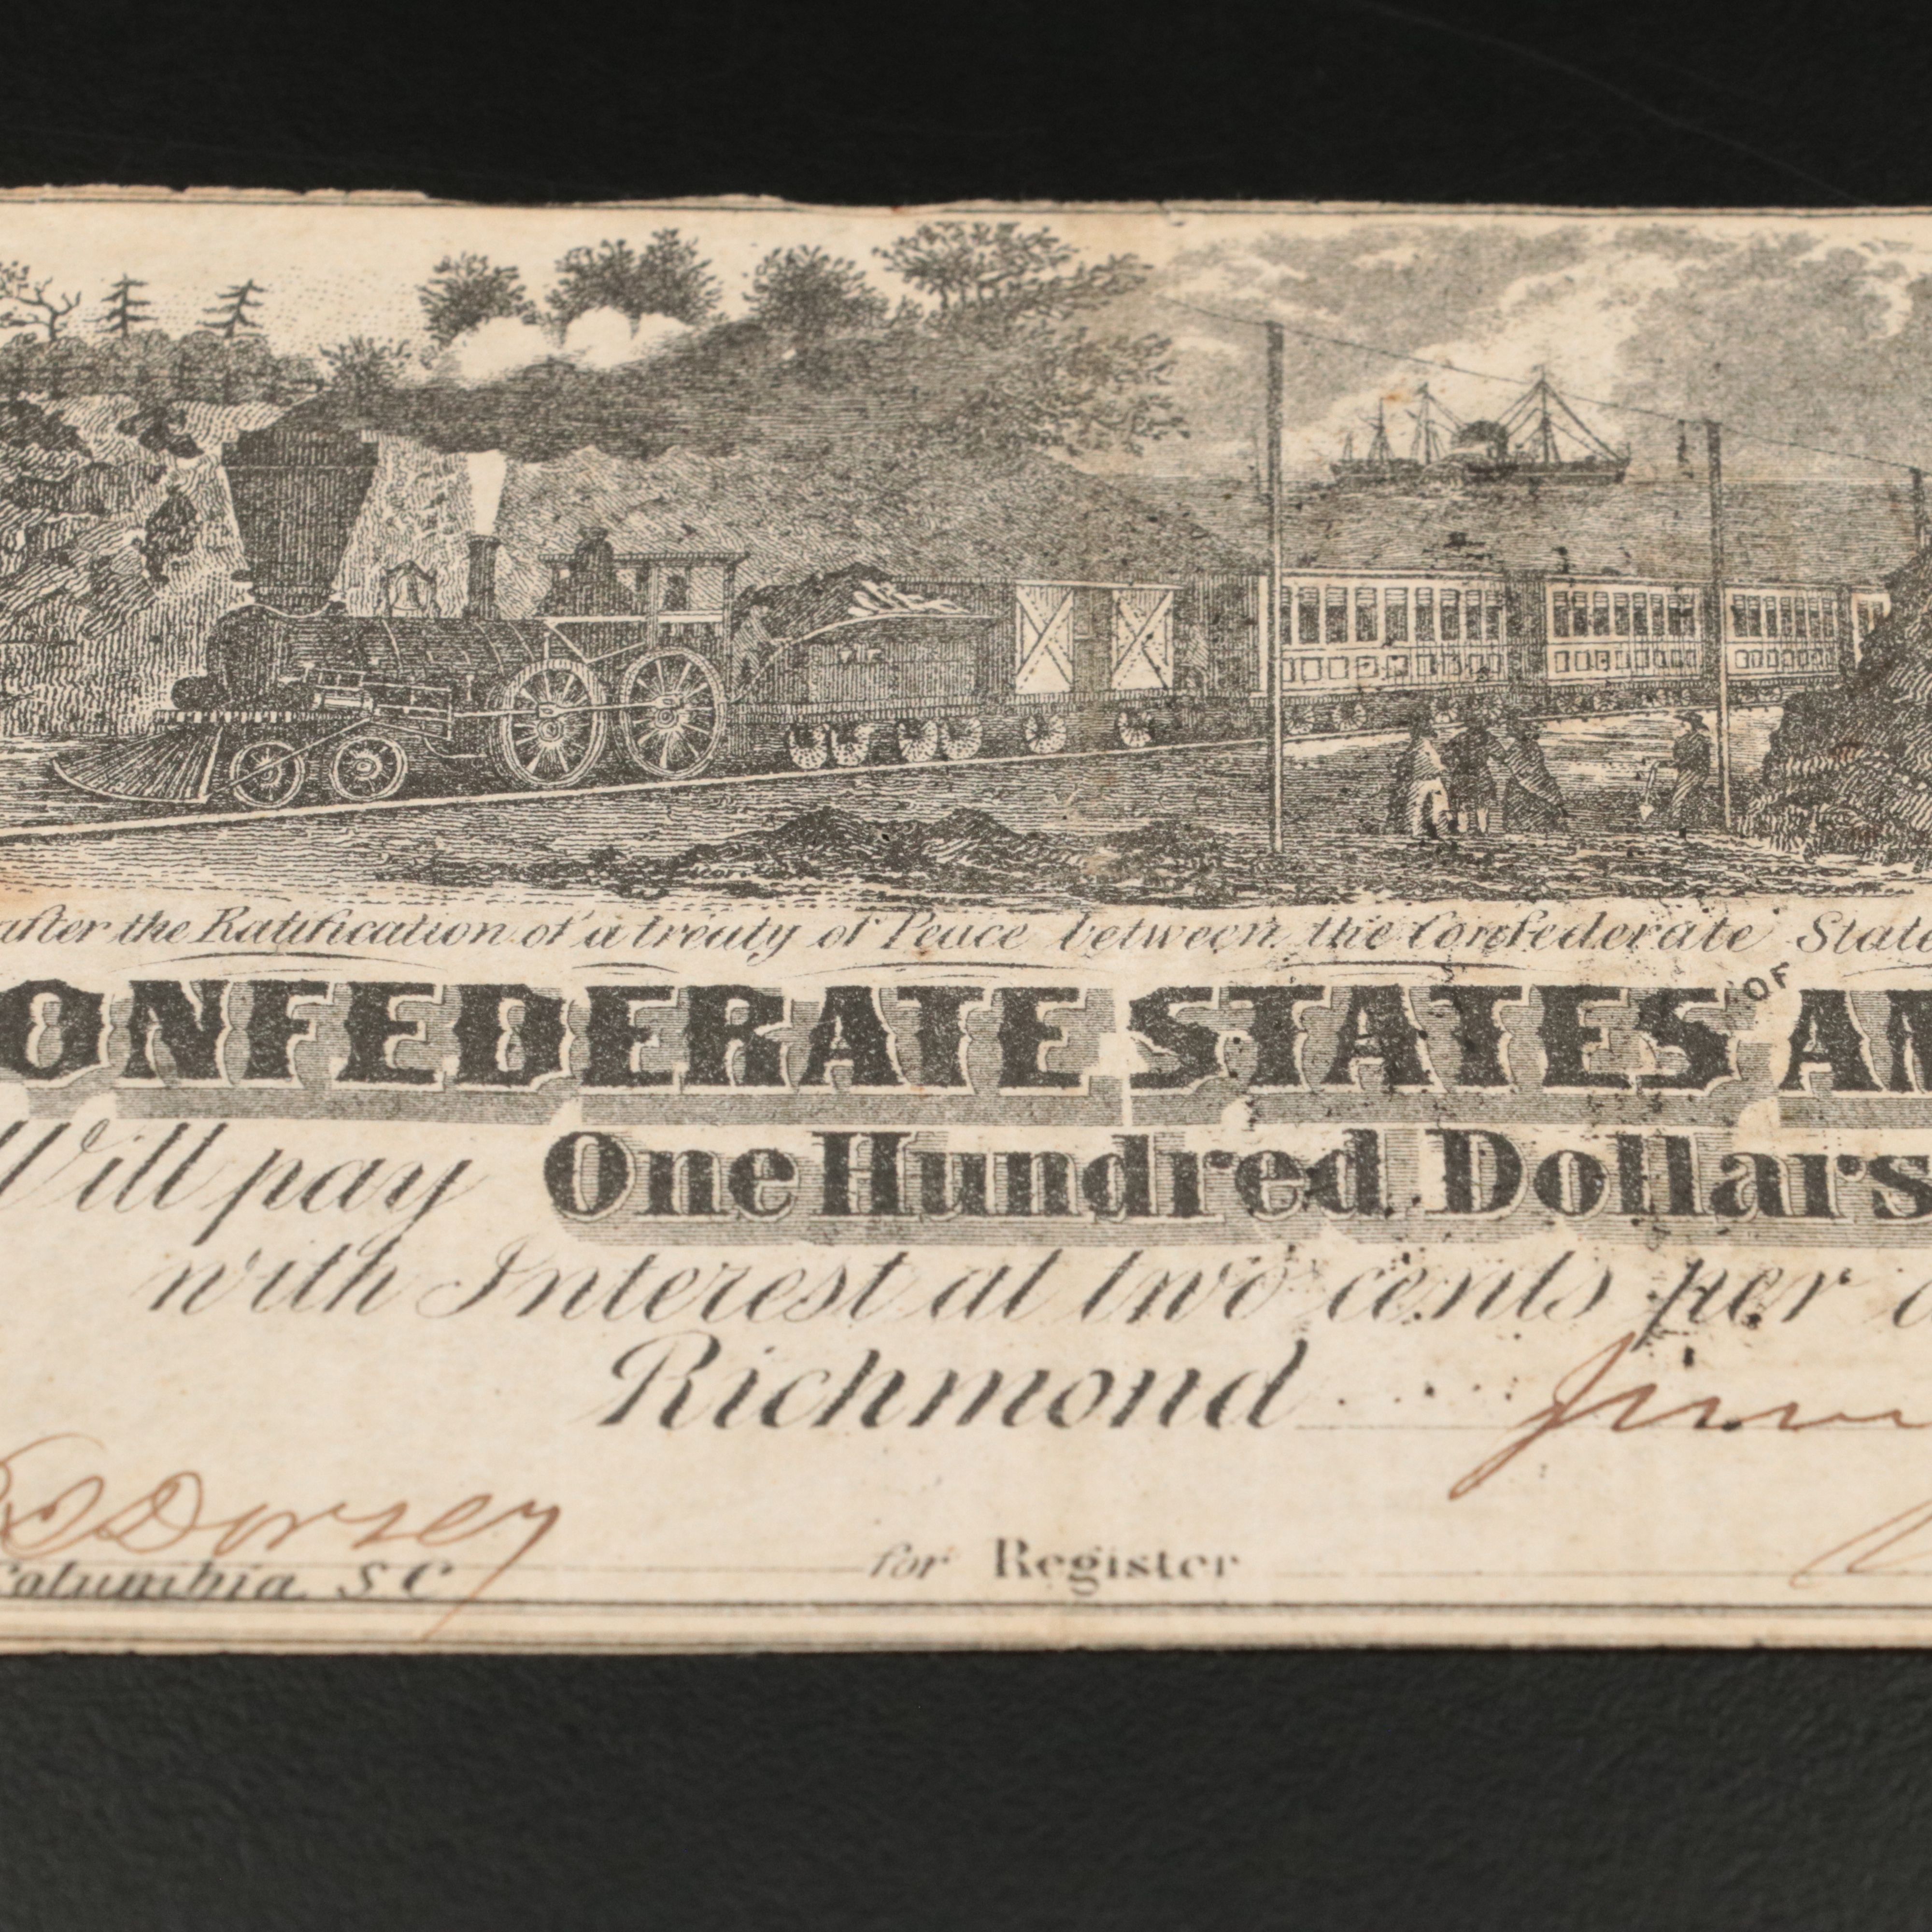 after the Ratification of a treaty of Peace between the Confederate State
ONFEDERATE STATES OF AM
Will pay One Hundred Dollars
with Interest at two cents per d
Richmond
Dorsey
Columbia, S C for Register